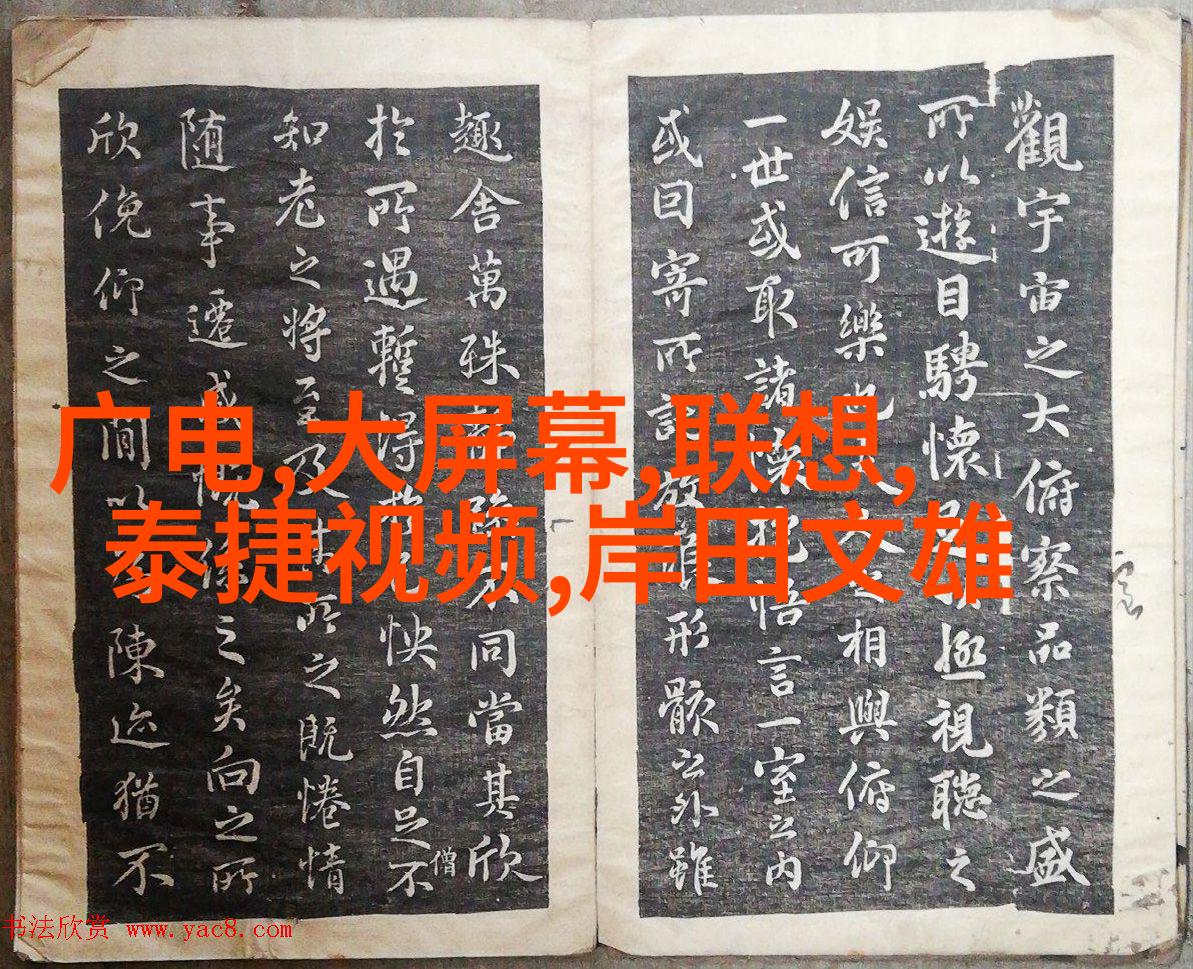 觀宇宙之大俯察品類之盛
所以遊目騁懷足以極視聽之
娛信可樂也夫人之相與俯仰
一世或取諸懷抱悟言一室之内
或因寄所託放浪形骸之外雖
趣舍萬殊靜躁不同當其欣
於所遇蹔得於己怏然自足不
僧
知老之將至及其所之既惓情
随事遷感慨係之矣向之所
欣俛仰之閒以為陳迹猶不
广电,大屏幕,联想,
泰捷视频,岸田文雄
书法欣赏 www.yac8.com